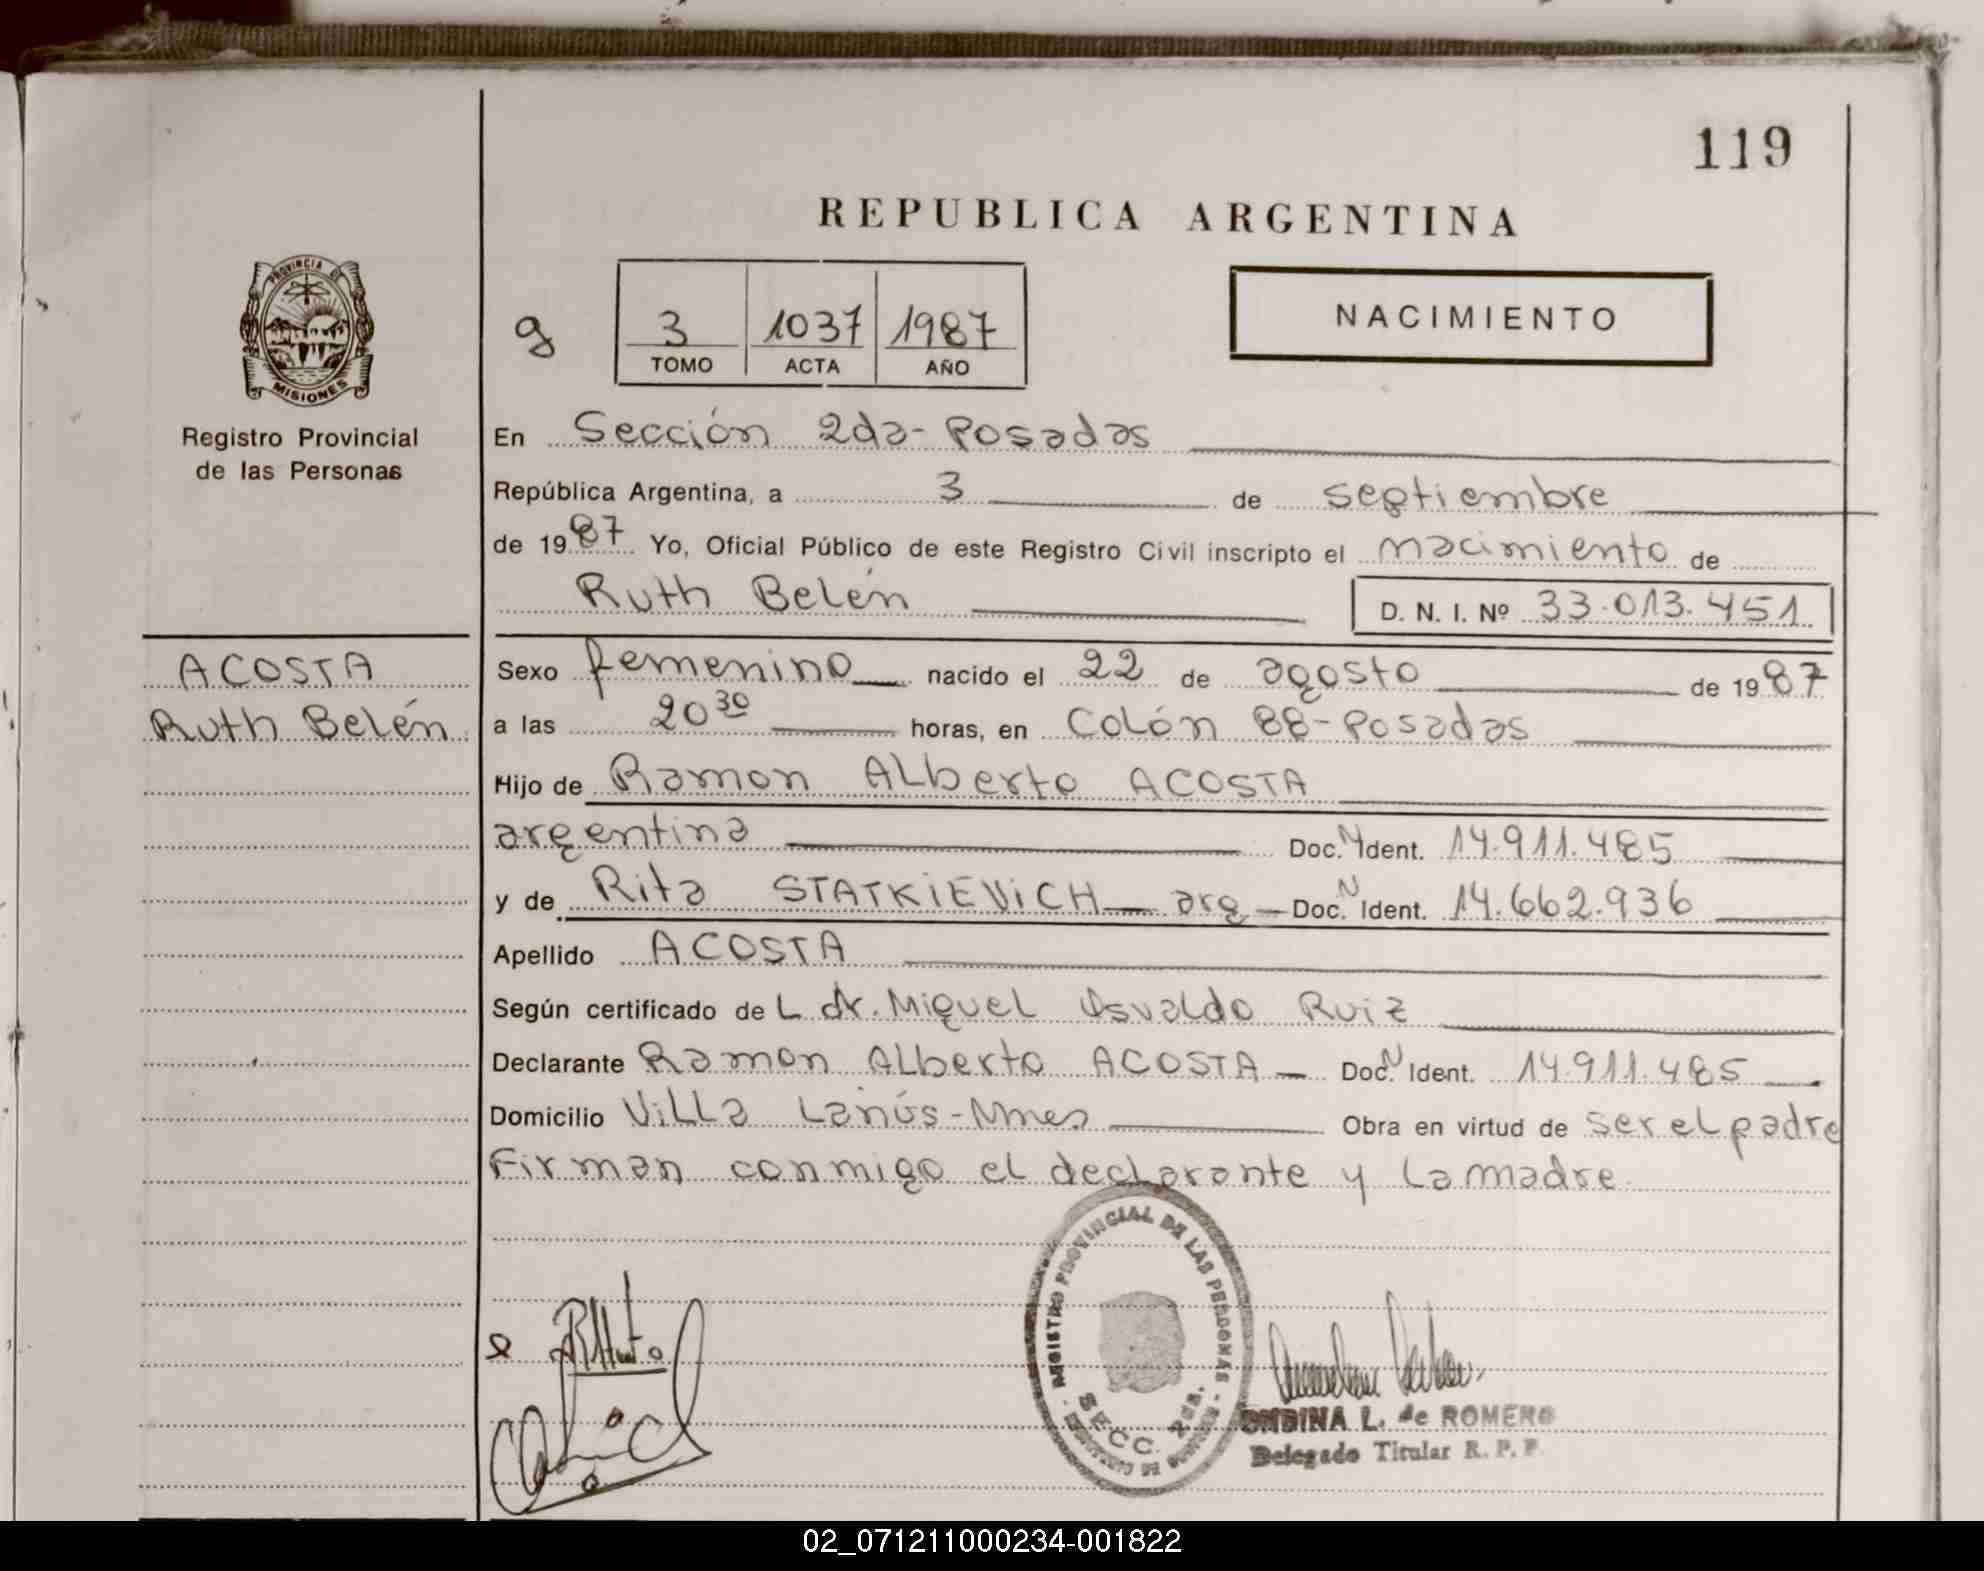 119
REPUBLICA ARGENTINA
PROVINCIA DE
MISIONES
Registro Provincial
de las Personas
g 3 1037 1987
TOMO ACTA AÑO
NACIMIENTO
En Sección 2da- Posadas
República Argentina, a 3 de septiembre
de 1987 Yo, Oficial Público de este Registro Civil inscripto el nacimiento de
Ruth Belén D. N. I. Nº 33.013.451
ACOSTA
Ruth Belén
Sexo femenino nacido el 22 de agosto de 1987
a las 20 30 horas, en Colón 88-Posadas
Hijo de Ramon Alberto ACOSTA
argentina Doc. N Ident. 14.911.485
y de Rita STATKIEVICH arg Doc. N Ident. 14.662.936
Apellido ACOSTA
Según certificado de L dr. Miguel Osvaldo Ruiz
Declarante Ramon Alberto ACOSTA Doc. N Ident. 14.911.485
Domicilio Villa Lanús-Mnes Obra en virtud de ser el padre
Firman conmigo el declarante y la madre
REGISTRO PROVINCIAL DE LAS PERSONAS
SECC. 2da.
ONDINA L. de ROMERO
Delegado Titular R. P. P.
02_071211000234-001822